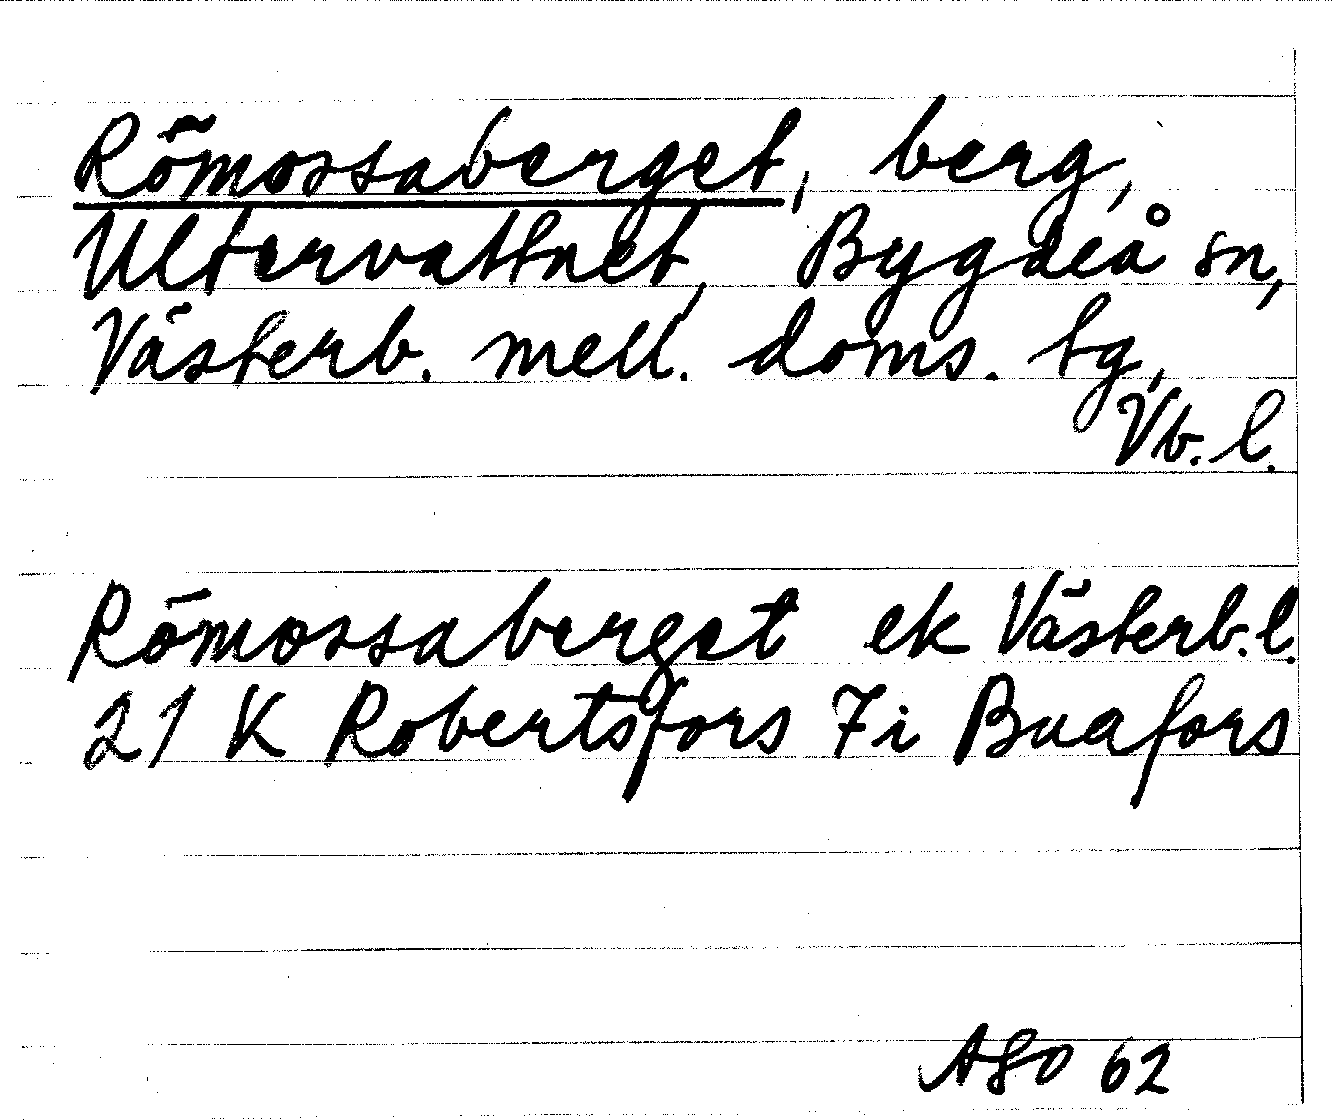 Römossaberget, berg,
Ultervattnet, Bygdeå sn,
Västerb. mell. doms. tg,
Vb. l.
Römossaberget ek Västerb. l.
21 K Robertsfors 7i Buafors
AGO 62